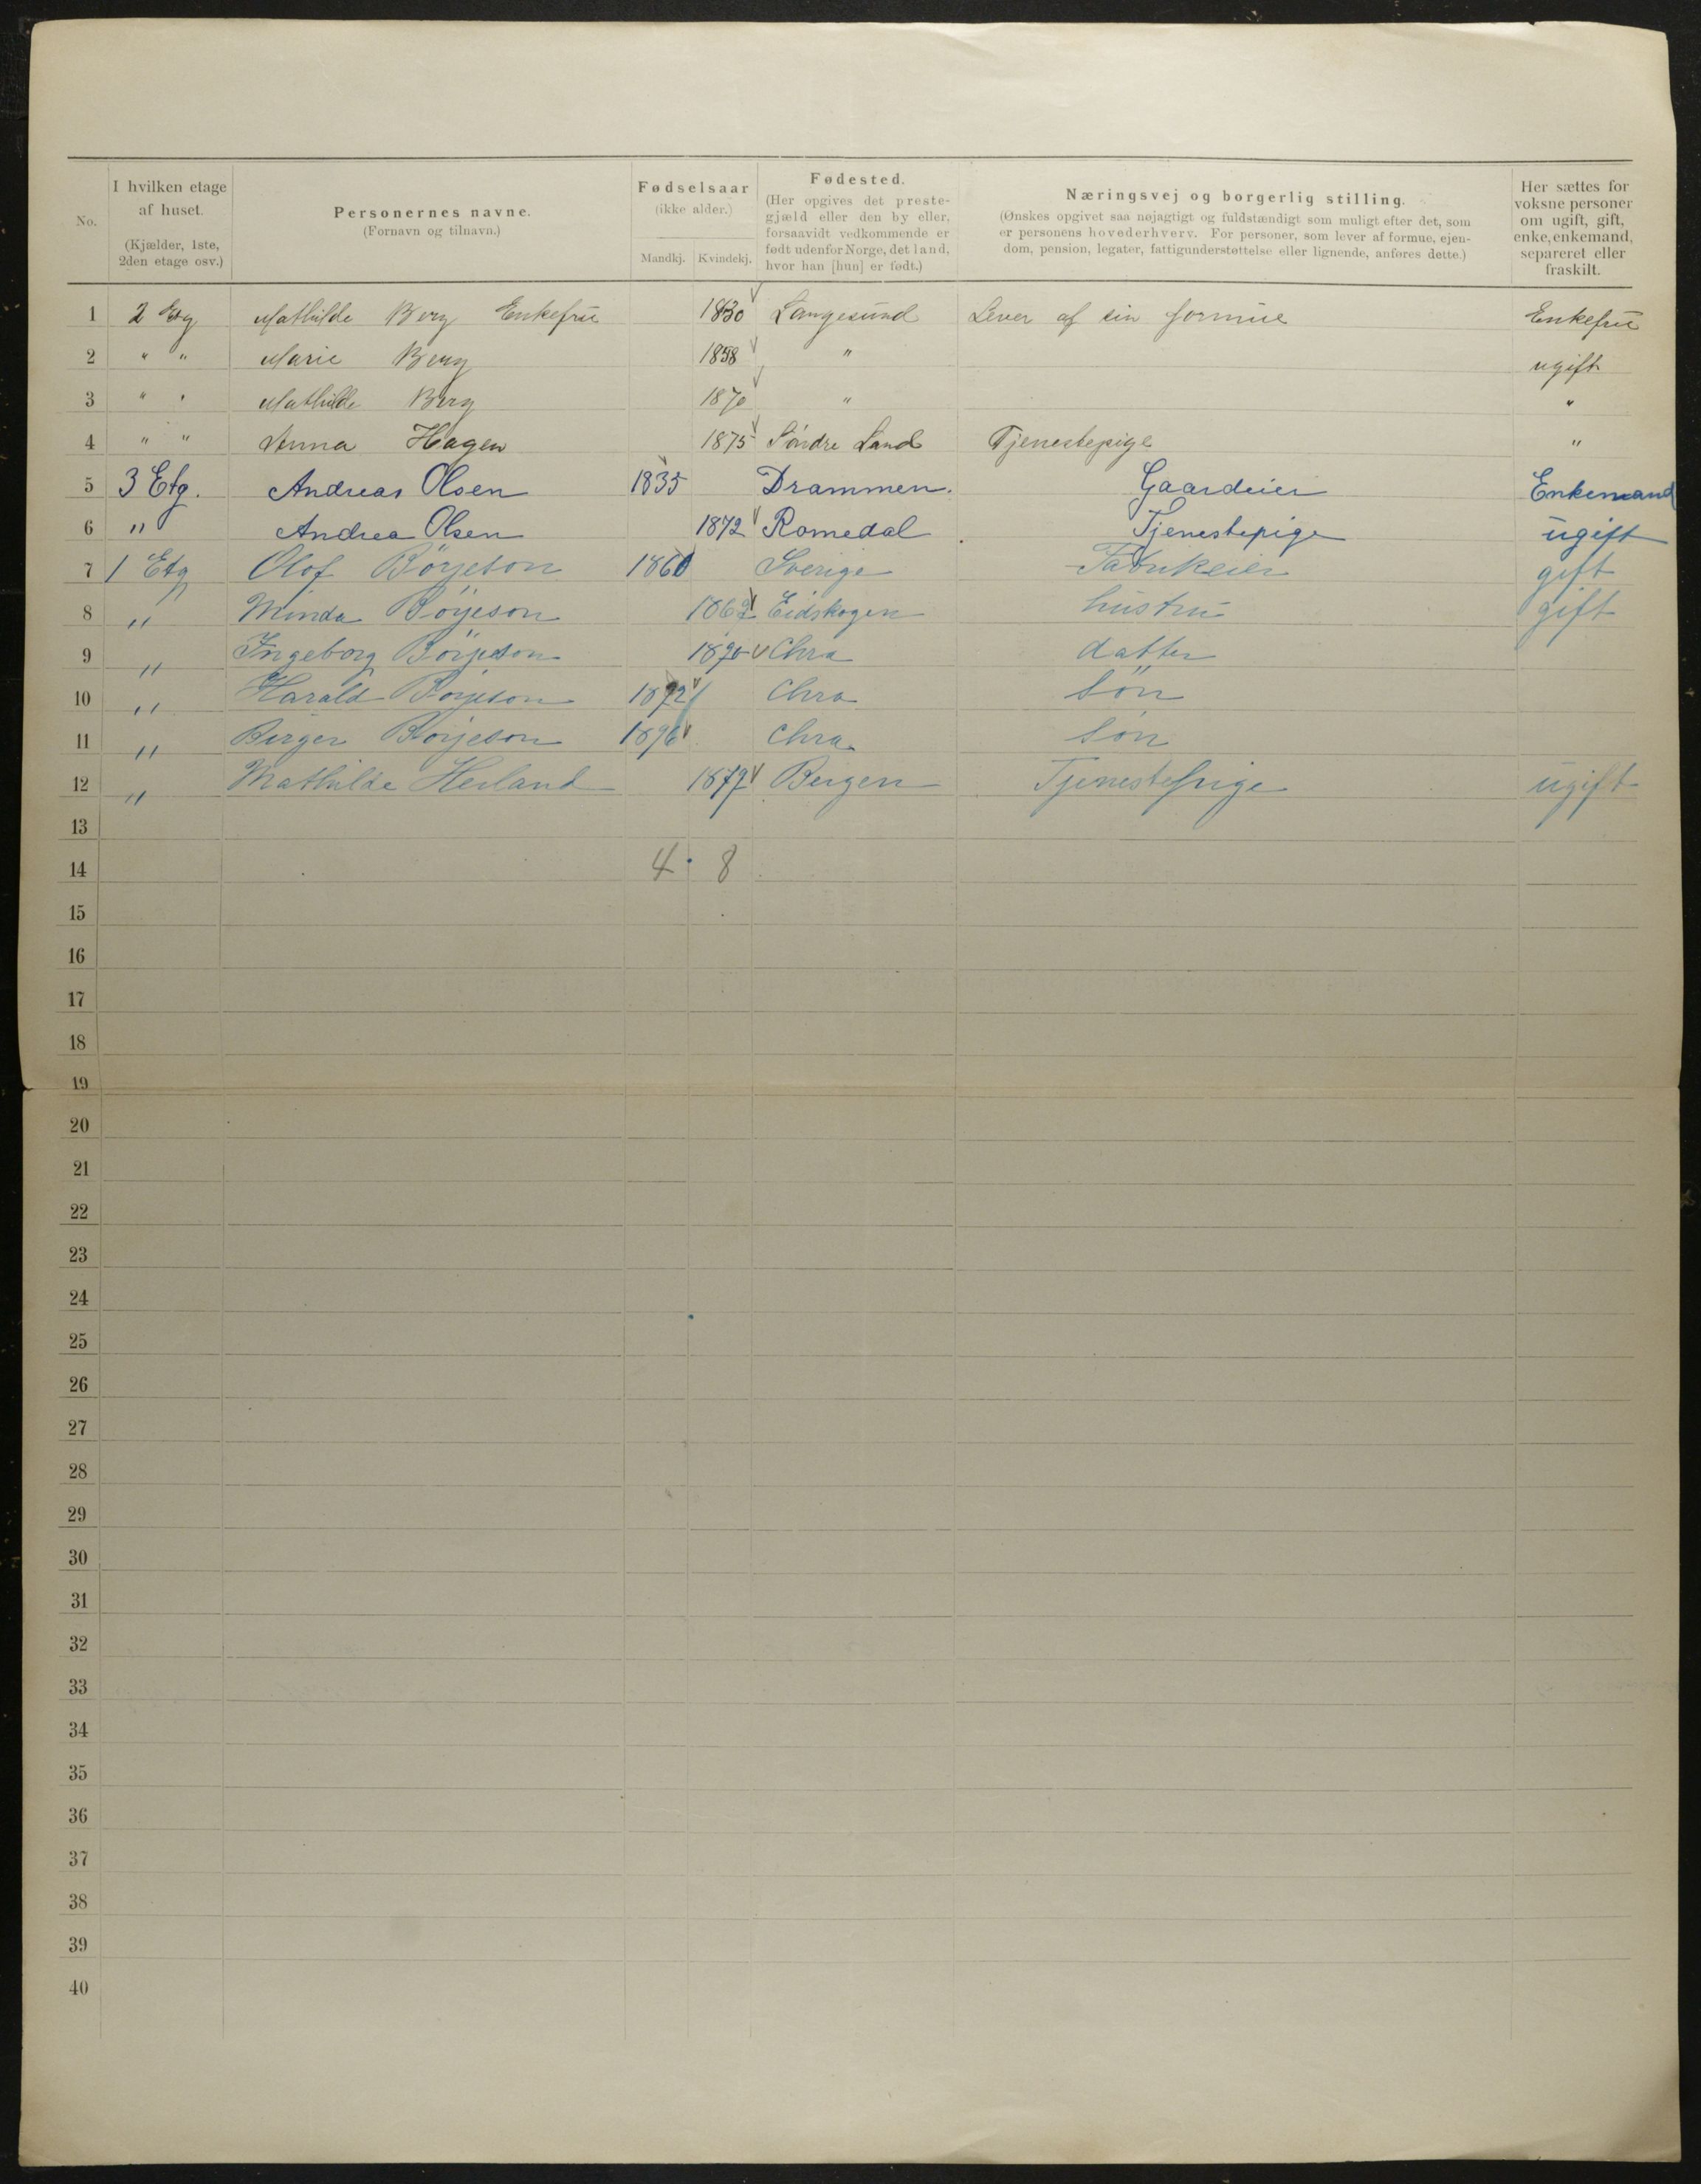 No. I hvilken etage af huset. (Kjælder, 1ste, 2den etage osv.) Personernes navne. (Fornavn og tilnavn.) Fødselsaar (ikke alder.) Mandkj. Kvindekj. Fødested. (Her opgives det prestegjæld eller den by eller, forsaavidt vedkommende er født udenfor Norge, det land, hvor han [hun] er født.) Næringsvej og borgerlig stilling. (Ønskes opgivet saa nøjagtigt og fuldstændigt som muligt efter det, som er personens hovederhverv. For personer, som lever af formue, ejendom, pension, legater, fattigunderstøttelse eller lignende, anføres dette.) Her sættes for voksne personer om ugift, gift, enke, enkemand, separeret eller fraskilt.
1 2 Etg Mathilde Berg Enkefrü 1830 Langesund Lever af sin formüe Enkefrü
2 " " Marie Berg 1858 " ugift
3 " " Mathilde Berg 1870 " "
4 " " Anna Hagen 1875 Söndre Land Tjenestepige "
5 3 Etg. Andreas Olsen 1835 Drammen. Gaardeier Enkemand
6 " Andrea Olsen 1872 Romedal Tjenestepige ugift
7 1 Etg Olof Börjeson 1860 Sverige Fabrikeier gift
8 " Minda Börjeson 1862 Eidskogen hustru gift
9 " Ingeborg Börjeson 1890 Chra datter
10 " Harald Börjeson 1892 Chra Sön
11 " Birger Börjeson 1896 Chra Sön
12 " Mathilde Heiland 1872 Bergen Tjenestepige ugift
13
14 4 8
15
16
17
18
19
20
21
22
23
24
25
26
27
28
29
30
31
32
33
34
35
36
37
38
39
40